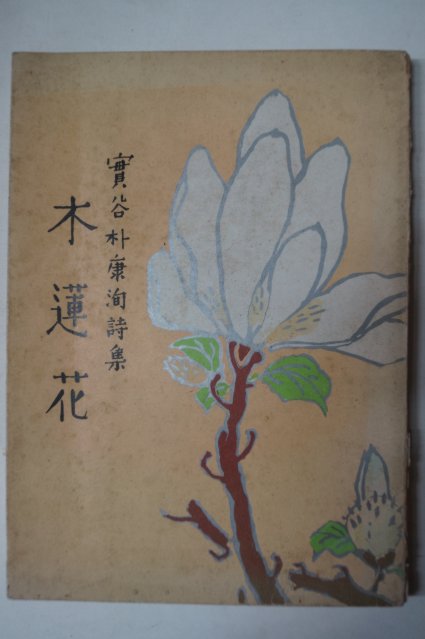 實谷朴康洵詩集
木蓮花